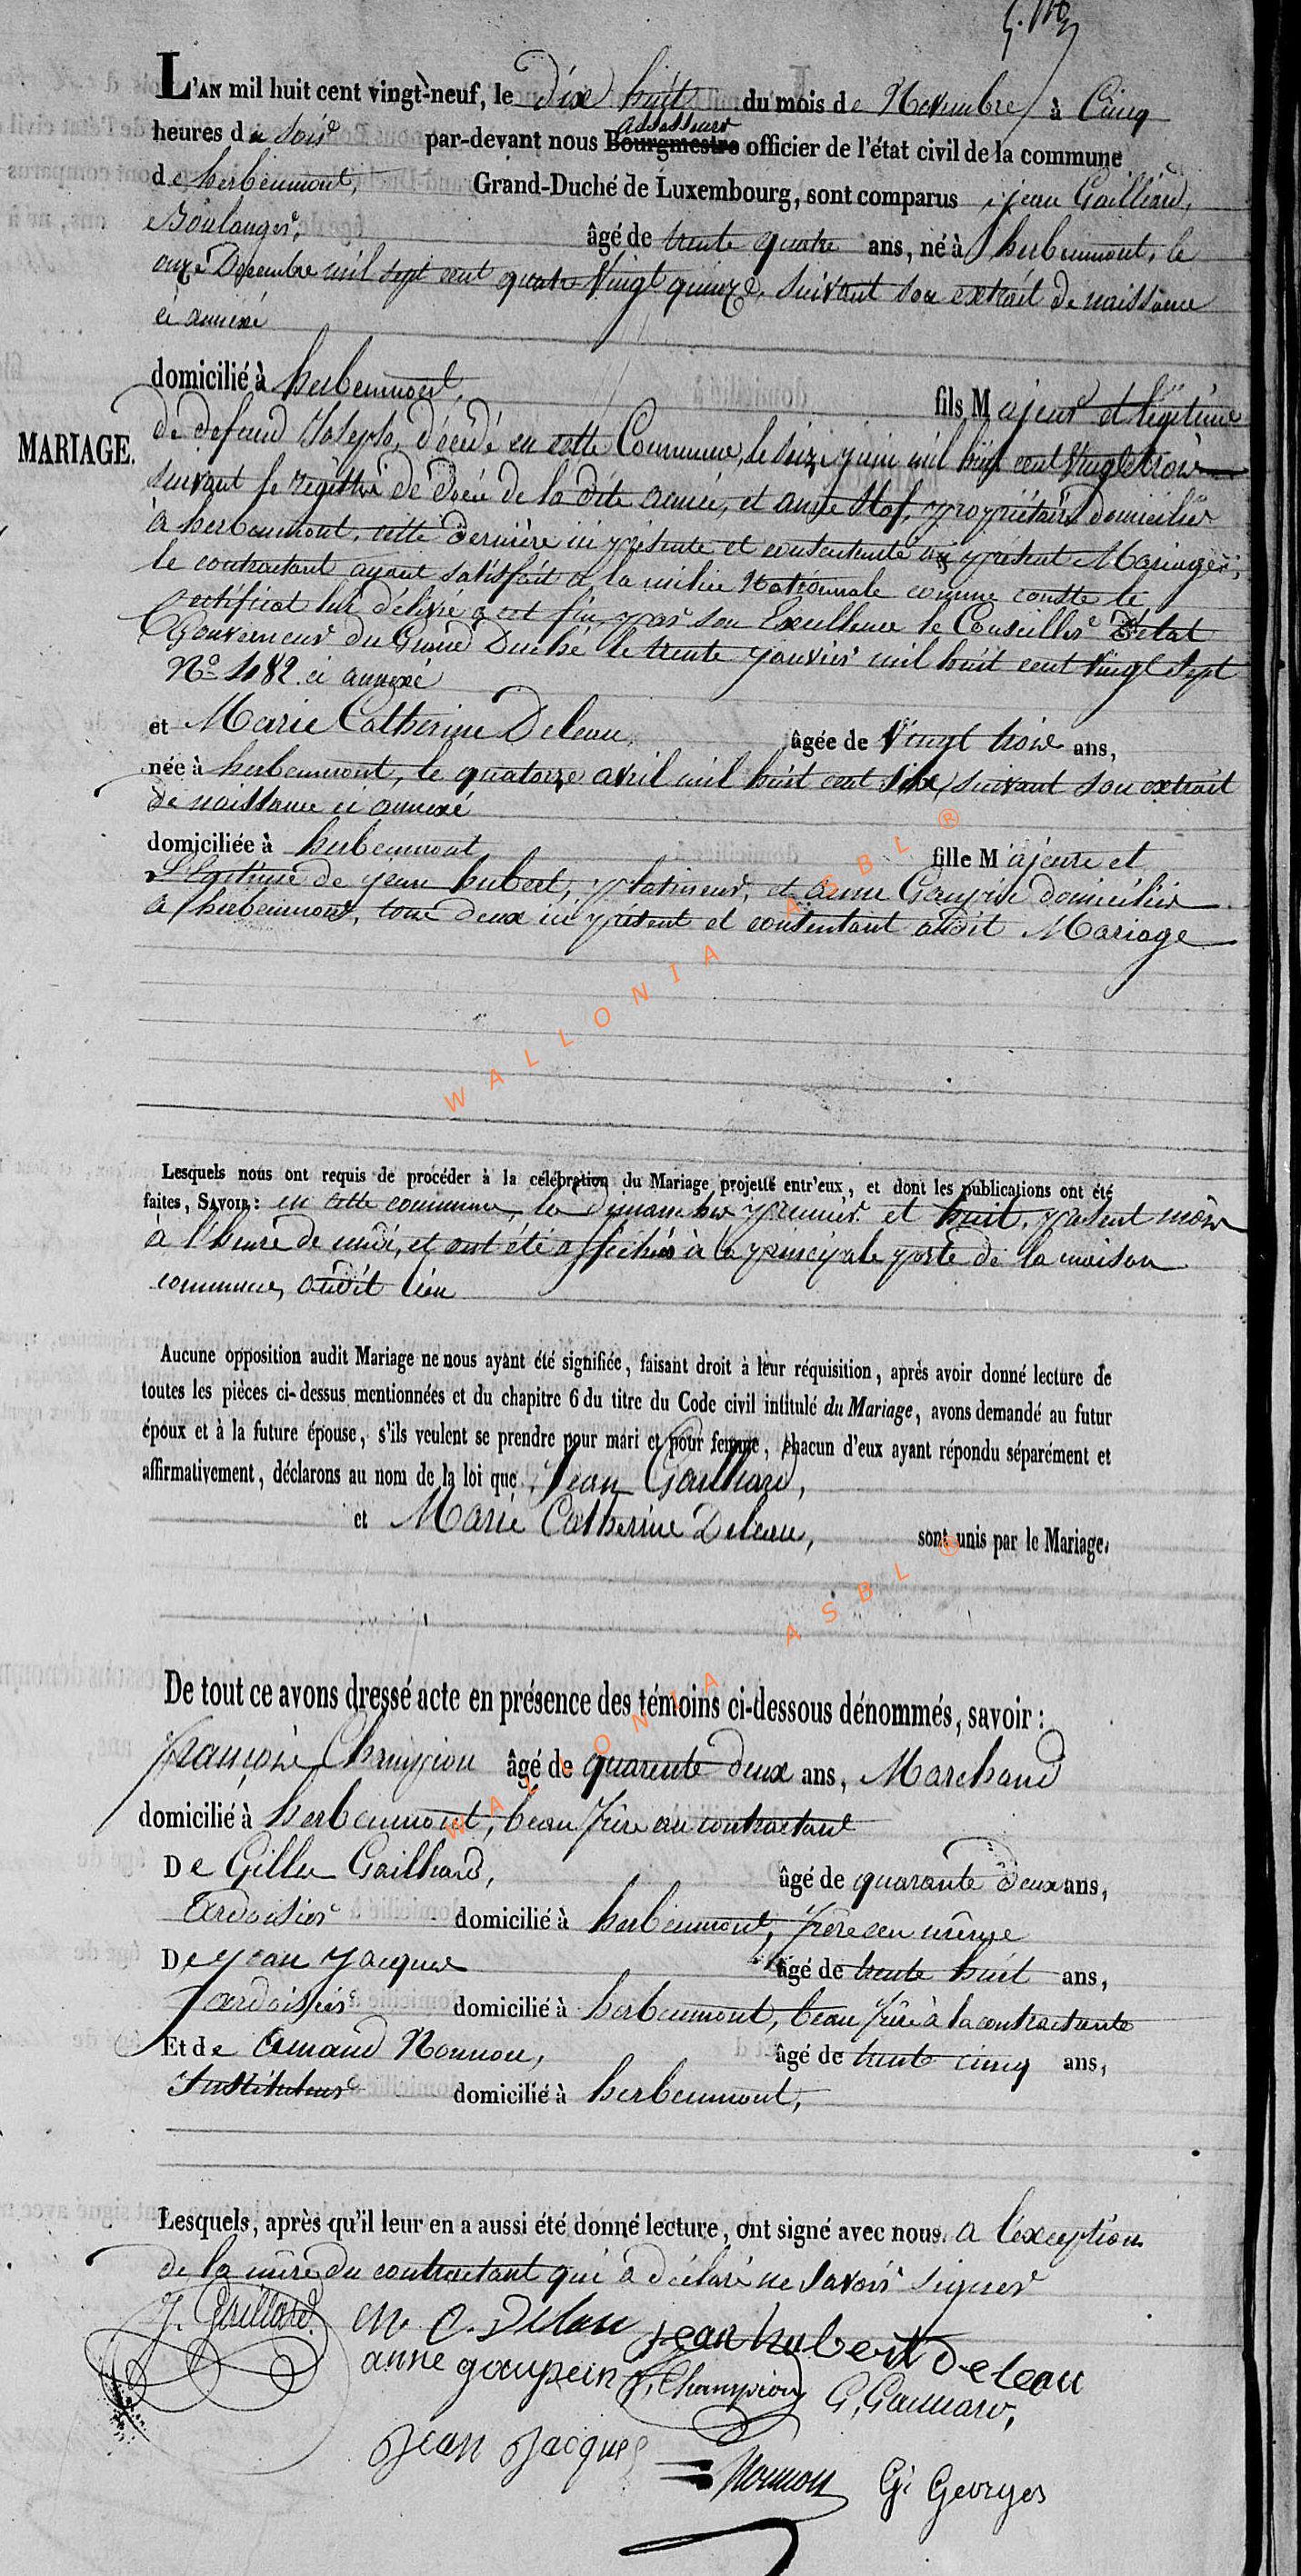 L'AN mil huit cent vingt-neuf, le dix huit du mois de Novembre à Cinq
assesseur
heures du soir par-devant nous Bourgmestre officier de l'état civil de la commune
de herbeumont, Grand-Duché de Luxembourg, sont comparus jean Gailliard,
Boulanger, âgé de trente quatre ans, né à herbeumont, le
onze Decembre mil sept cent quatre Vingt quinze, suivant son extrait de naissance
ci annexé
domicilié à herbeumont, fils Majeur et légitime
MARIAGE.
de defund Joseph, décédé en cette Commune, le seize juin mil huit cent Vingt trois
suivant le régistre de décé de la dite année, et anne Naf, propriétaire domicilié
à herbeumont, cette dernière ici présente et consentante au présent Mariage,
le contractant ayant satisfait à la milice Nationnale comme conste le
Certificat lui délivré a cet fin par son Excellence le Conseiller d'etat
Gouverneur du Grand Duché le trente janvier mil huit cent vingt sept
N° 482 ci annexé
et Marie Catherine Deleau, âgée de Vingt trois ans,
née à herbeumont, le quatorze avril mil huit cent six, suivant son extrait
de naissance ci annexé
domiciliée à herbeumont fille Majeure et
Légitime de jean hubert, platineur, et anne Goupin domiciliés
à herbeumont, tous deux ici présent et consentant audit Mariage
WALLONIA ASBL ®
Lesquels nous ont requis de procéder à la célébration du Mariage projetté entr'eux, et dont les publications ont été
faites, SAVOIR : en cette commune, les dimanches premier et huit, présent mois
à l'heure de midi, et ont été affichés à la principale porte de la maison
commune, audit lieu
Aucune opposition audit Mariage ne nous ayant été signifiée, faisant droit à leur réquisition, après avoir donné lecture de
toutes les pièces ci-dessus mentionnées et du chapitre 6 du titre du Code civil intitulé du Mariage, avons demandé au futur
époux et à la future épouse, s'ils veulent se prendre pour mari et pour femme, chacun d'eux ayant répondu séparément et
affirmativement, déclarons au nom de la loi que Jean Gailliard,
et Marie Catherine Deleau, sont unis par le Mariage.
WALLONIA ASBL ®
De tout ce avons dressé acte en présence des témoins ci-dessous dénommés, savoir :
françois Champion âgé de quarente deux ans, Marchand
domicilié à herbeumont, beau frère au contractant
De Gilles Gailliard, âgé de quarante deux ans,
ardoisier domicilié à herbeumont, frère au même
De jean jacques âgé de trente huit ans,
ardoisier domicilié à herbeumont, beau frère à la contractante
Et de amand Nonnon, âgé de trente cinq ans,
Instituteur domicilié à herbeumont,
Lesquels, après qu'il leur en a aussi été donné lecture, ont signé avec nous. a l'exception
de la mère du contractant qui a déclaré ne savoir signer
J. Gaillard. M. C. Delau jean hubert Deleau
anne goupein f. Champion G. Gailliard,
Jean Jacques Nonnon G. Georges